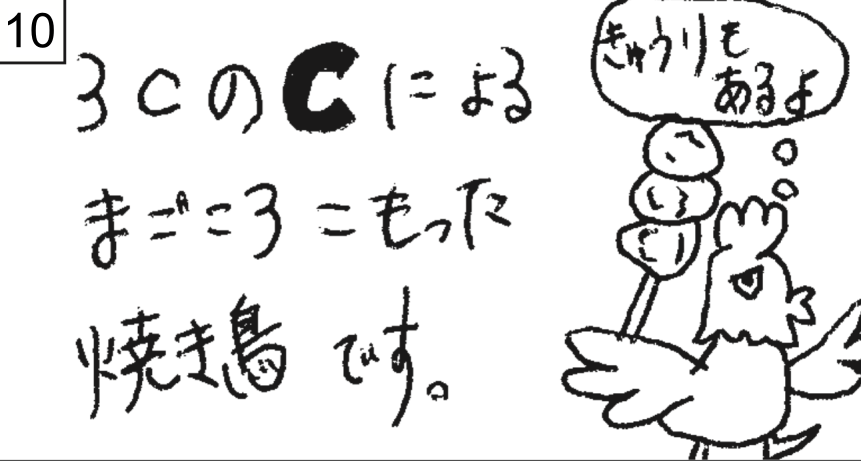 10
3CのCによる
まごころこもった
焼き鳥です。
きゅうりも
あるよ